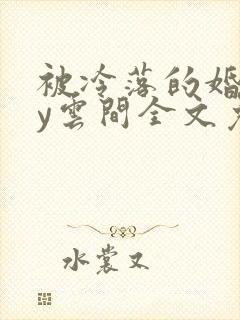 被冷落的婚
y雲間全文
水裳又